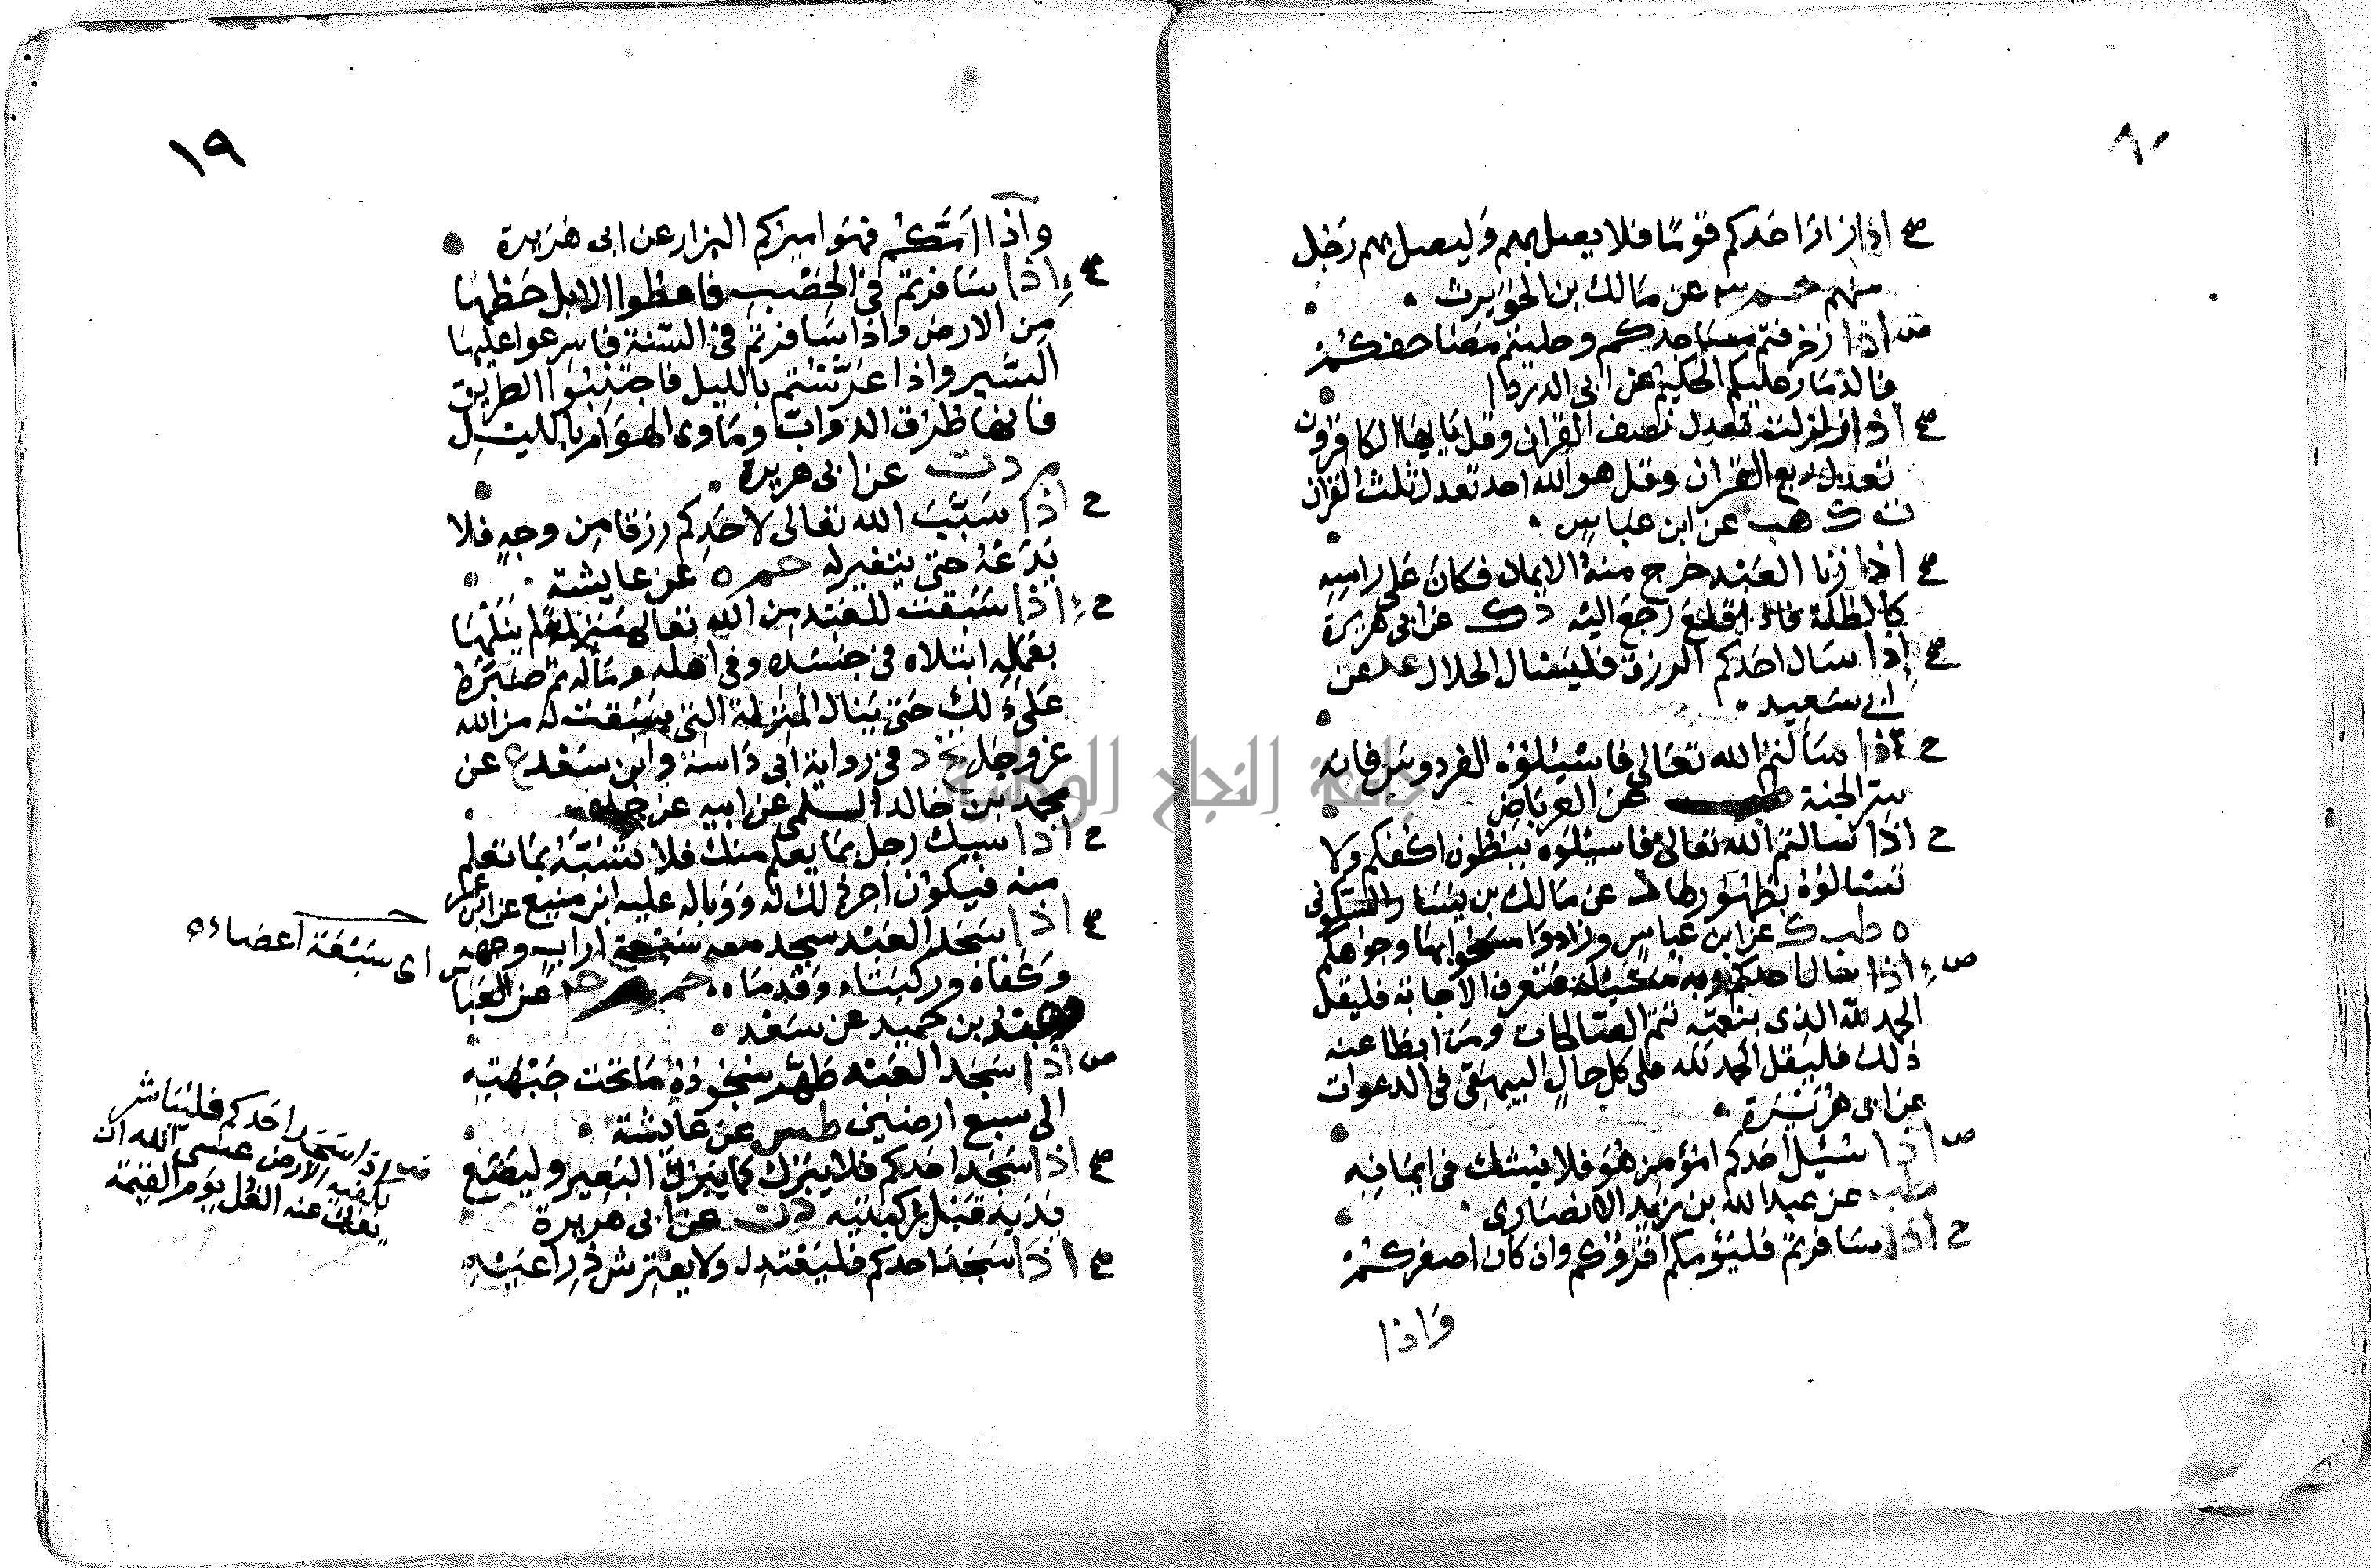 صح اذا زار احدكم قوما فلا يصل بهم وليصل بهم رجل
منهم حم عن مالك بن الحويرث
ض اذا زخرفتم مساجدكم وحليتم مصاحفكم
فالدمار عليكم الحكيم عن ابي الدردا
صح اذا زلزلت تعدل نصف القران وقل يايها الكافرون
تعدل ربع القران وقل هو الله احد تعدل ثلث القران
ت ك هب عن ابن عباس
صح اذا زنا العبد خرج منه الايمان فكان على راسه
كالظلة فاذا اقلع رجع اليه د ك عن ابي هريرة
صح اذا سال احدكم الرزق فليسال الحلال عد عن
ابي سعيد
ح اذا سالتم الله تعالى فاسئلوه الفردوس فانه
سر الجنة طب عن العرباض
ح اذا سالتم الله تعالى فاسئلوه ببطون اكفكم ولا
تسالوه بظهورها د عن مالك بن يسار السكوني
ه طب ك عن ابن عباس وزادوا امسحوا بها وجوهكم
ض اذا سال احدكم ربه مسئلة فتعرف الاجابة فليقل
الحمد لله الذى بنعمته تتم الصالحات ومن ابطا عنه
ذلك فليقل الحمد لله على كل حال البيهقى فى الدعوات
عن ابى هريرة
ض اذا سئل احدكم امؤمن هو فلا يشك فى ايمانه
طب عن عبد الله بن زيد الانصارى
ح اذا سافرتم فليؤمكم اقرؤكم وان كان اصغركم
واذا
١٩
واذا امكم فهو اميركم البزار عن ابى هريرة
صح اذا سافرتم فى الخصب فاعطوا الابل حظها
من الارض واذا سافرتم فى السنة فاسرعوا عليها
السير واذا عرستم بالليل فاجتنبوا الطريق
فانها طرق الدواب وماوى الهوام بالليل
م د ت عن ابى هريرة
ح اذا سبب الله تعالى لاحدكم رزقا من وجه فلا
يدعه حتى يتغير له حم ه عن عايشة
ح اذا سبقت للعبد من الله تعالى منزلة لم ينلها
بعمله ابتلاه فى جسده وفى اهله وماله ثم صبره
على ذلك حتى ينال المنزلة التى سبقت له من الله
عز وجل تخ د فى رواية ابى داسة وابن سعد ع عن
محمد بن خالد السلمى عن ابيه عن جده
ح اذا سبك رجل بما يعلم منك فلا تسبه بما تعلم
منه فيكون اجر ذلك له ووباله عليه ابن منيع عن ابن عمر
صح اذا سجد العبد سجد معه سبعة اراب وجهه
وكفاه وركبتاه وقدماه حم م عن العباس
عبد بن حميد عن سعد
اى سبعة اعضاءه
ض اذا سجد العبد طهر سجوده ما تحت جبهته
الى سبع ارضين طس عن عايشة
صح اذا سجد احدكم فلا يبرك كما يبرك البعير وليضع
يديه قبل ركبتيه د ن عن ابى هريرة
صح اذا سجد احدكم فليعتدل ولا يفترش ذراعيه
اذا سجد احدكم فليباشر
بكفيه الارض عسى الله ان
يفك عنه الغل يوم القيمة
جامعة النجاح الوطنية